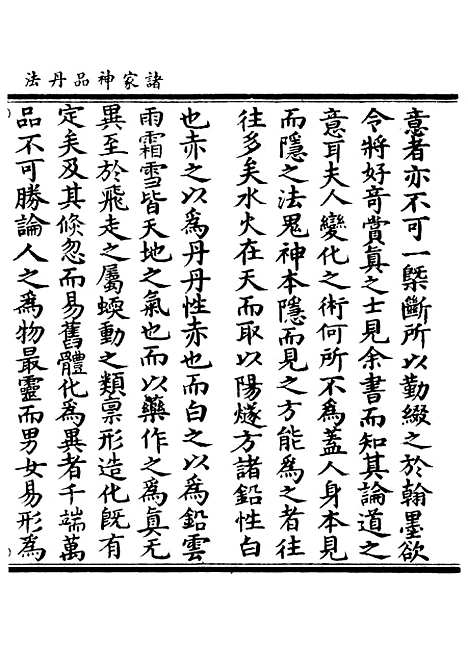 諸家神品丹法
意者亦不可一槩斷所以勤綴之於翰墨欲
令將好奇賞真之士見余書而知其論道之
意耳夫人變化之術何所不為蓋人身本見
而隱之法鬼神本隱而見之方能為之者往
往多矣水火在天而取以陽燧方諸鉛性白
也赤之以為丹丹性赤也而白之以為鉛雲
雨霜雪皆天地之氣也而以藥作之為真无
異至於飛走之屬蝡動之類禀形造化既有
定矣及其倏忽而易舊體化為異者千端萬
品不可勝論人之為物最靈而男女易形為